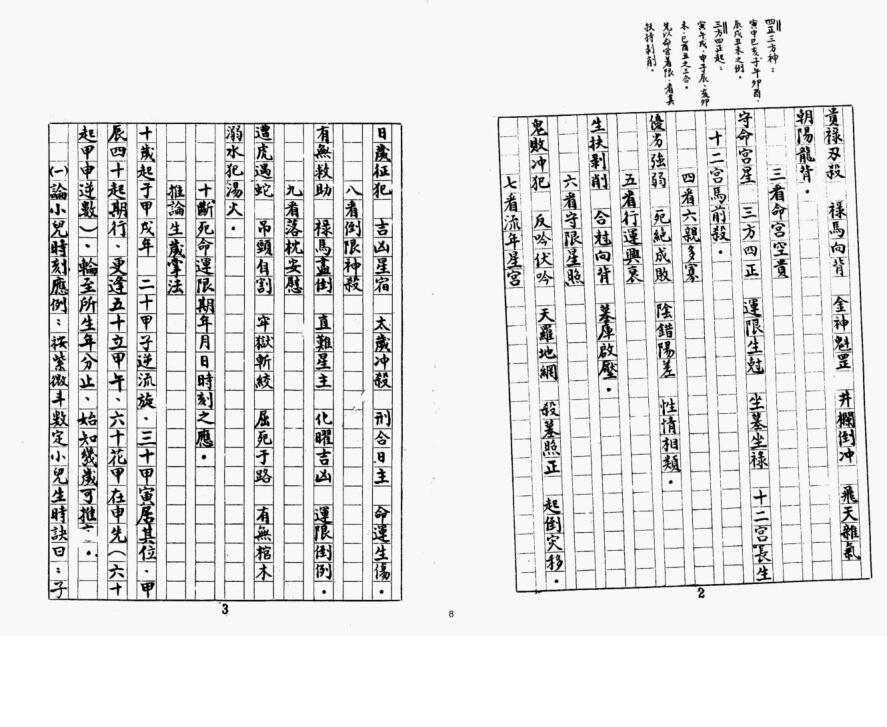 四正三方神：
寅申巳亥子午卯酉、
辰戌丑未之例。
三方四正起：
寅午戌、申子辰、亥卯
未、巳酉丑之三合。
先以命宮着限、看其
扶持剝削。
貴祿刃殺　祿馬向背　金神魁罡　井欄倒冲　飛天雜氣
朝陽龍背。
三看命宮空貴
守命宮星　三方四正　運限生尅　坐墓坐祿　十二宮長生
十二宮馬前殺。
四看六親多寡
優劣強弱　死絕成敗　陰錯陽差　性情相類。
五看行運興衰
生扶剝削　合尅向背　墓庫啟壓。
六看守限星照
鬼敗冲犯　反吟伏吟　天羅地網　殺墓照正　起倒災移。
七看流年星宮
2
日歲征犯　吉凶星宿　太歲冲殺　刑合日主　命運生傷。
八看倒限神殺
有無救助　祿馬盡倒　直難星主　化曜吉凶　運限倒例。
九看落枕安慰
遭虎遇蛇　吊頸自割　牢獄斬絞　屈死于路　有無棺木
溺水犯湯火。
十斷死命運限期年月日時刻之應。
推論生歲掌法
十歲起于甲戌年　二十甲子逆流旋．三十甲寅居其位、甲
辰四十起期行、更逢五十立甲午、六十花甲在申先（六十
起甲申逆數）、輪至所生年分止、始知幾歲可推亡。
㈠論小兒時刻應例：按紫微斗數定小兒生時訣曰：子
3
8